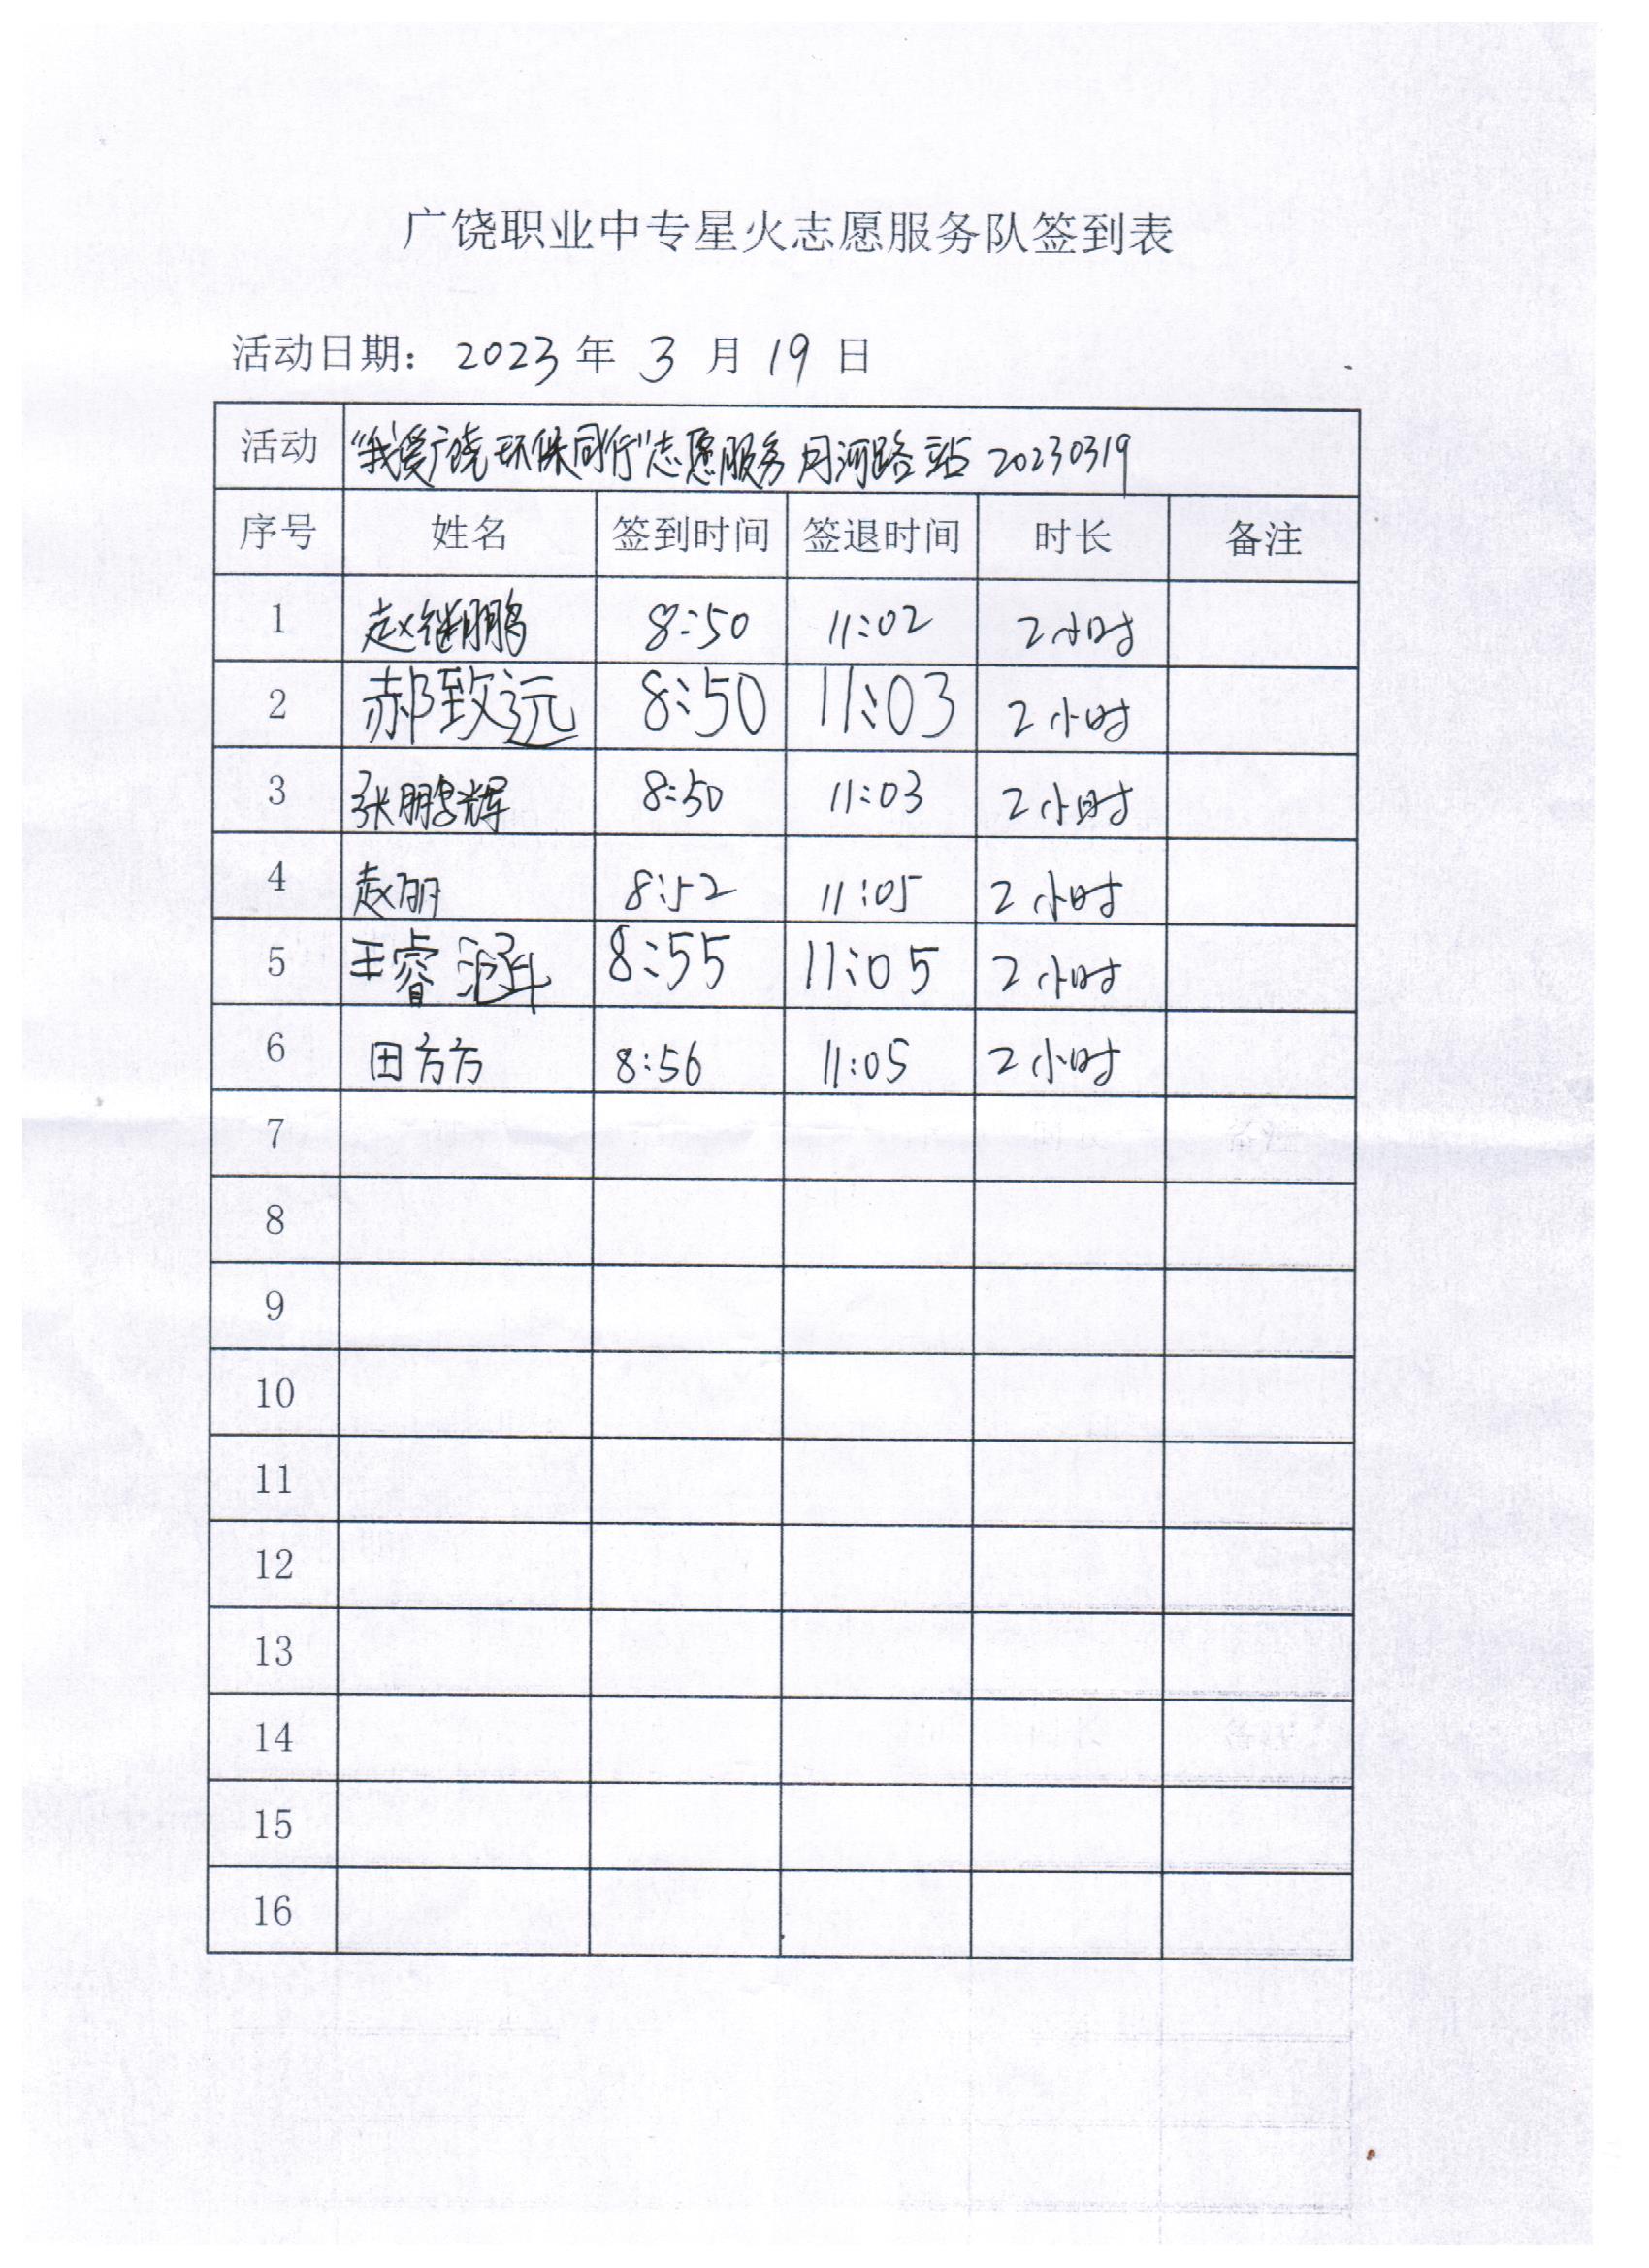 广饶职业中专星火志愿服务队签到表
活动日期: 2023 年 3 月 19 日
活动 "我爱广饶 环保同行"志愿服务 月河路站 20230319
序号 姓名 签到时间 签退时间 时长 备注
1 赵继鹏 8:50 11:02 2小时
2 郝致远 8:50 11:03 2小时
3 张鹏辉 8:50 11:03 2小时
4 赵丽 8:52 11:05 2小时
5 王睿涵 8:55 11:05 2小时
6 田方方 8:56 11:05 2小时
7
8
9
10
11
12
13
14
15
16